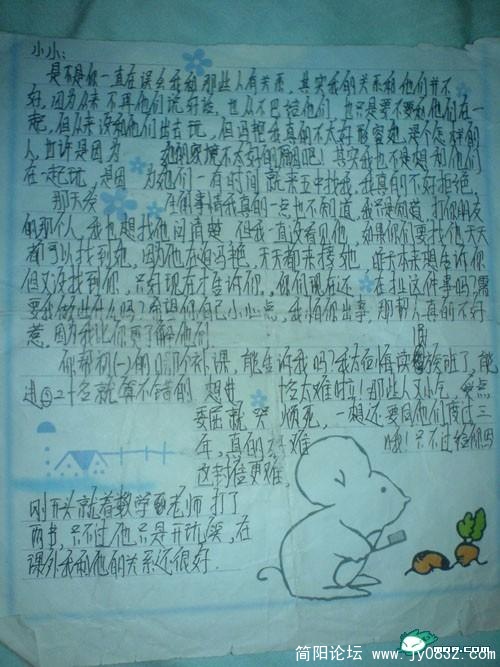 小小:
是不是你一直在误会我和那些人有关系,其实我的关系和他们并不
好,因为从来不再他们说好话,也从不巴结他们,也只是要不要和他们在一
起,但从来没和他们出去玩,但冯艳我真的不太好形容她,是个怎样的
人,也许是因为 她的家境不太好的原因吧!其实我也不是想和他们
在一起玩,是因 为她们一有时间就来五中找我,我真的不好拒绝,
那天发 生的事请我真的一点也不知道,我只是问着,打你朋友
的那个人,我也想找他问清楚 但我一直没看见他,如果你们要找他天天
都可以找到她,因为他在追冯艳,天天都来接她,昨天本来想告诉你
但又没找到你,只好现在才告诉你,你们现在还 在扯这件事吗?需
要我做出什么吗?希望你自己小心点,我怕你出事,那帮人真的不好
惹,因为我比你要了解他们.
你帮初(一)的 补课,能告诉我吗?我太后悔读 放班了,能
进 二十名就算不错的 想进 太难啦!那些人又小气,
委屈就哭 烦死,一想还要同他们度过三
年,真的 难 哦!只不过给你男
这封信更难,
刚开头就看数学 老师 打了
两书,只不过他只是开玩笑,在
课外我和他的关系还很好.
简阳论坛 www.jy0832.com